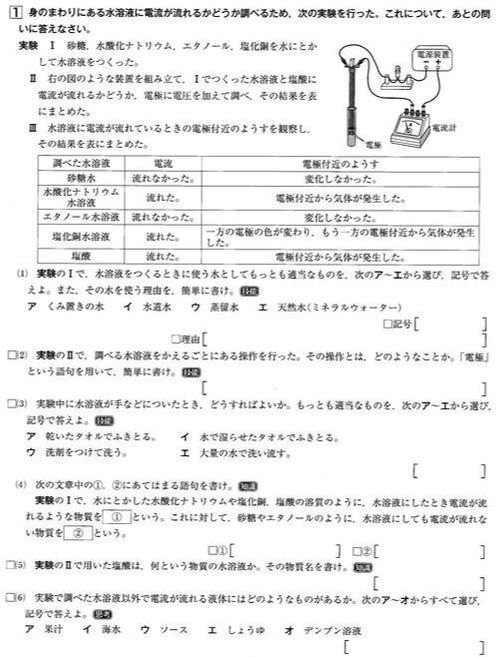 1 身のまわりにある水溶液に電流が流れるかどうか調べるため，次の実験を行った。これについて，あとの問
いに答えなさい。
実験 Ⅰ 砂糖，水酸化ナトリウム，エタノール，塩化銅を水にとか
して水溶液をつくった。
Ⅱ 右の図のような装置を組み立て，Ⅰでつくった水溶液と塩酸に
電流が流れるかどうか，電極に電圧を加えて調べ，その結果を表
にまとめた。
Ⅲ 水溶液に電流が流れているときの電極付近のようすを観察し，
その結果を表にまとめた。
電源装置
－ ＋
電流計
電極
調べた水溶液 電流 電極付近のようす
砂糖水 流れなかった。 変化しなかった。
水酸化ナトリウム
水溶液 流れた。 電極付近から気体が発生した。
エタノール水溶液 流れなかった。 変化しなかった。
塩化銅水溶液 流れた。 一方の電極の色が変わり，もう一方の電極付近から気体が発生
した。
塩酸 流れた。 電極付近から気体が発生した。
(1) 実験のⅠで，水溶液をつくるときに使う水としてもっとも適当なものを，次のア～エから選び，記号で答
えよ。また，その水を使う理由を，簡単に書け。技能
ア くみ置きの水 イ 水道水 ウ 蒸留水 エ 天然水（ミネラルウォーター）
□記号［ ］
□理由［ ］
□(2) 実験のⅡで，調べる水溶液をかえるごとにある操作を行った。その操作とは，どのようなことか。「電極」
という語句を用いて，簡単に書け。技能
［ ］
□(3) 実験中に水溶液が手などについたとき，どうすればよいか。もっとも適当なものを，次のア～エから選び，
記号で答えよ。技能
ア 乾いたタオルでふきとる。 イ 水で湿らせたタオルでふきとる。
ウ 洗剤をつけて洗う。 エ 大量の水で洗い流す。
［ ］
(4) 次の文章中の①，②にあてはまる語句を書け。知識
実験のⅠで，水にとかした水酸化ナトリウムや塩化銅，塩酸の溶質のように，水溶液にしたとき電流が流
れるような物質を ① という。これに対して，砂糖やエタノールのように，水溶液にしても電流が流れな
い物質を ② という。
□①［ ］ □②［ ］
□(5) 実験のⅡで用いた塩酸は，何という物質の水溶液か。その物質名を書け。知識
［ ］
□(6) 実験で調べた水溶液以外で電流が流れる液体にはどのようなものがあるか。次のア～オからすべて選び，
記号で答えよ。思考
ア 果汁 イ 海水 ウ ソース エ しょうゆ オ デンプン溶液
［ ］